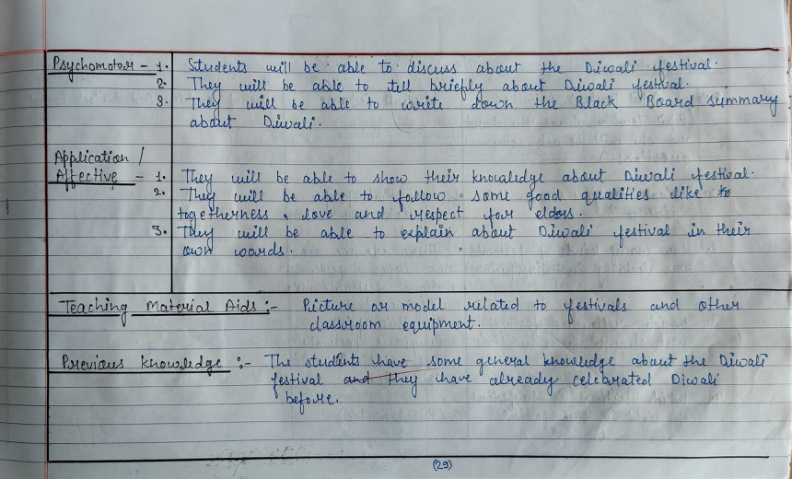 Psychomotor - 1. Students will be able to discuss about the Diwali festival.
2. They will be able to tell briefly about Diwali festival.
3. They will be able to write down the Black Board summary
about Diwali.
Application /
Affective - 1. They will be able to show their knowledge about Diwali festival.
2. They will be able to follow some good qualities like to
togetherness, love and respect for elders.
3. They will be able to explain about Diwali festival in their
own words.
Teaching Material Aids :- Picture or model related to festivals and other
classroom equipment.
Previous Knowledge :- The students have some general knowledge about the Diwali
festival and they have already celebrated Diwali
before.
(29)